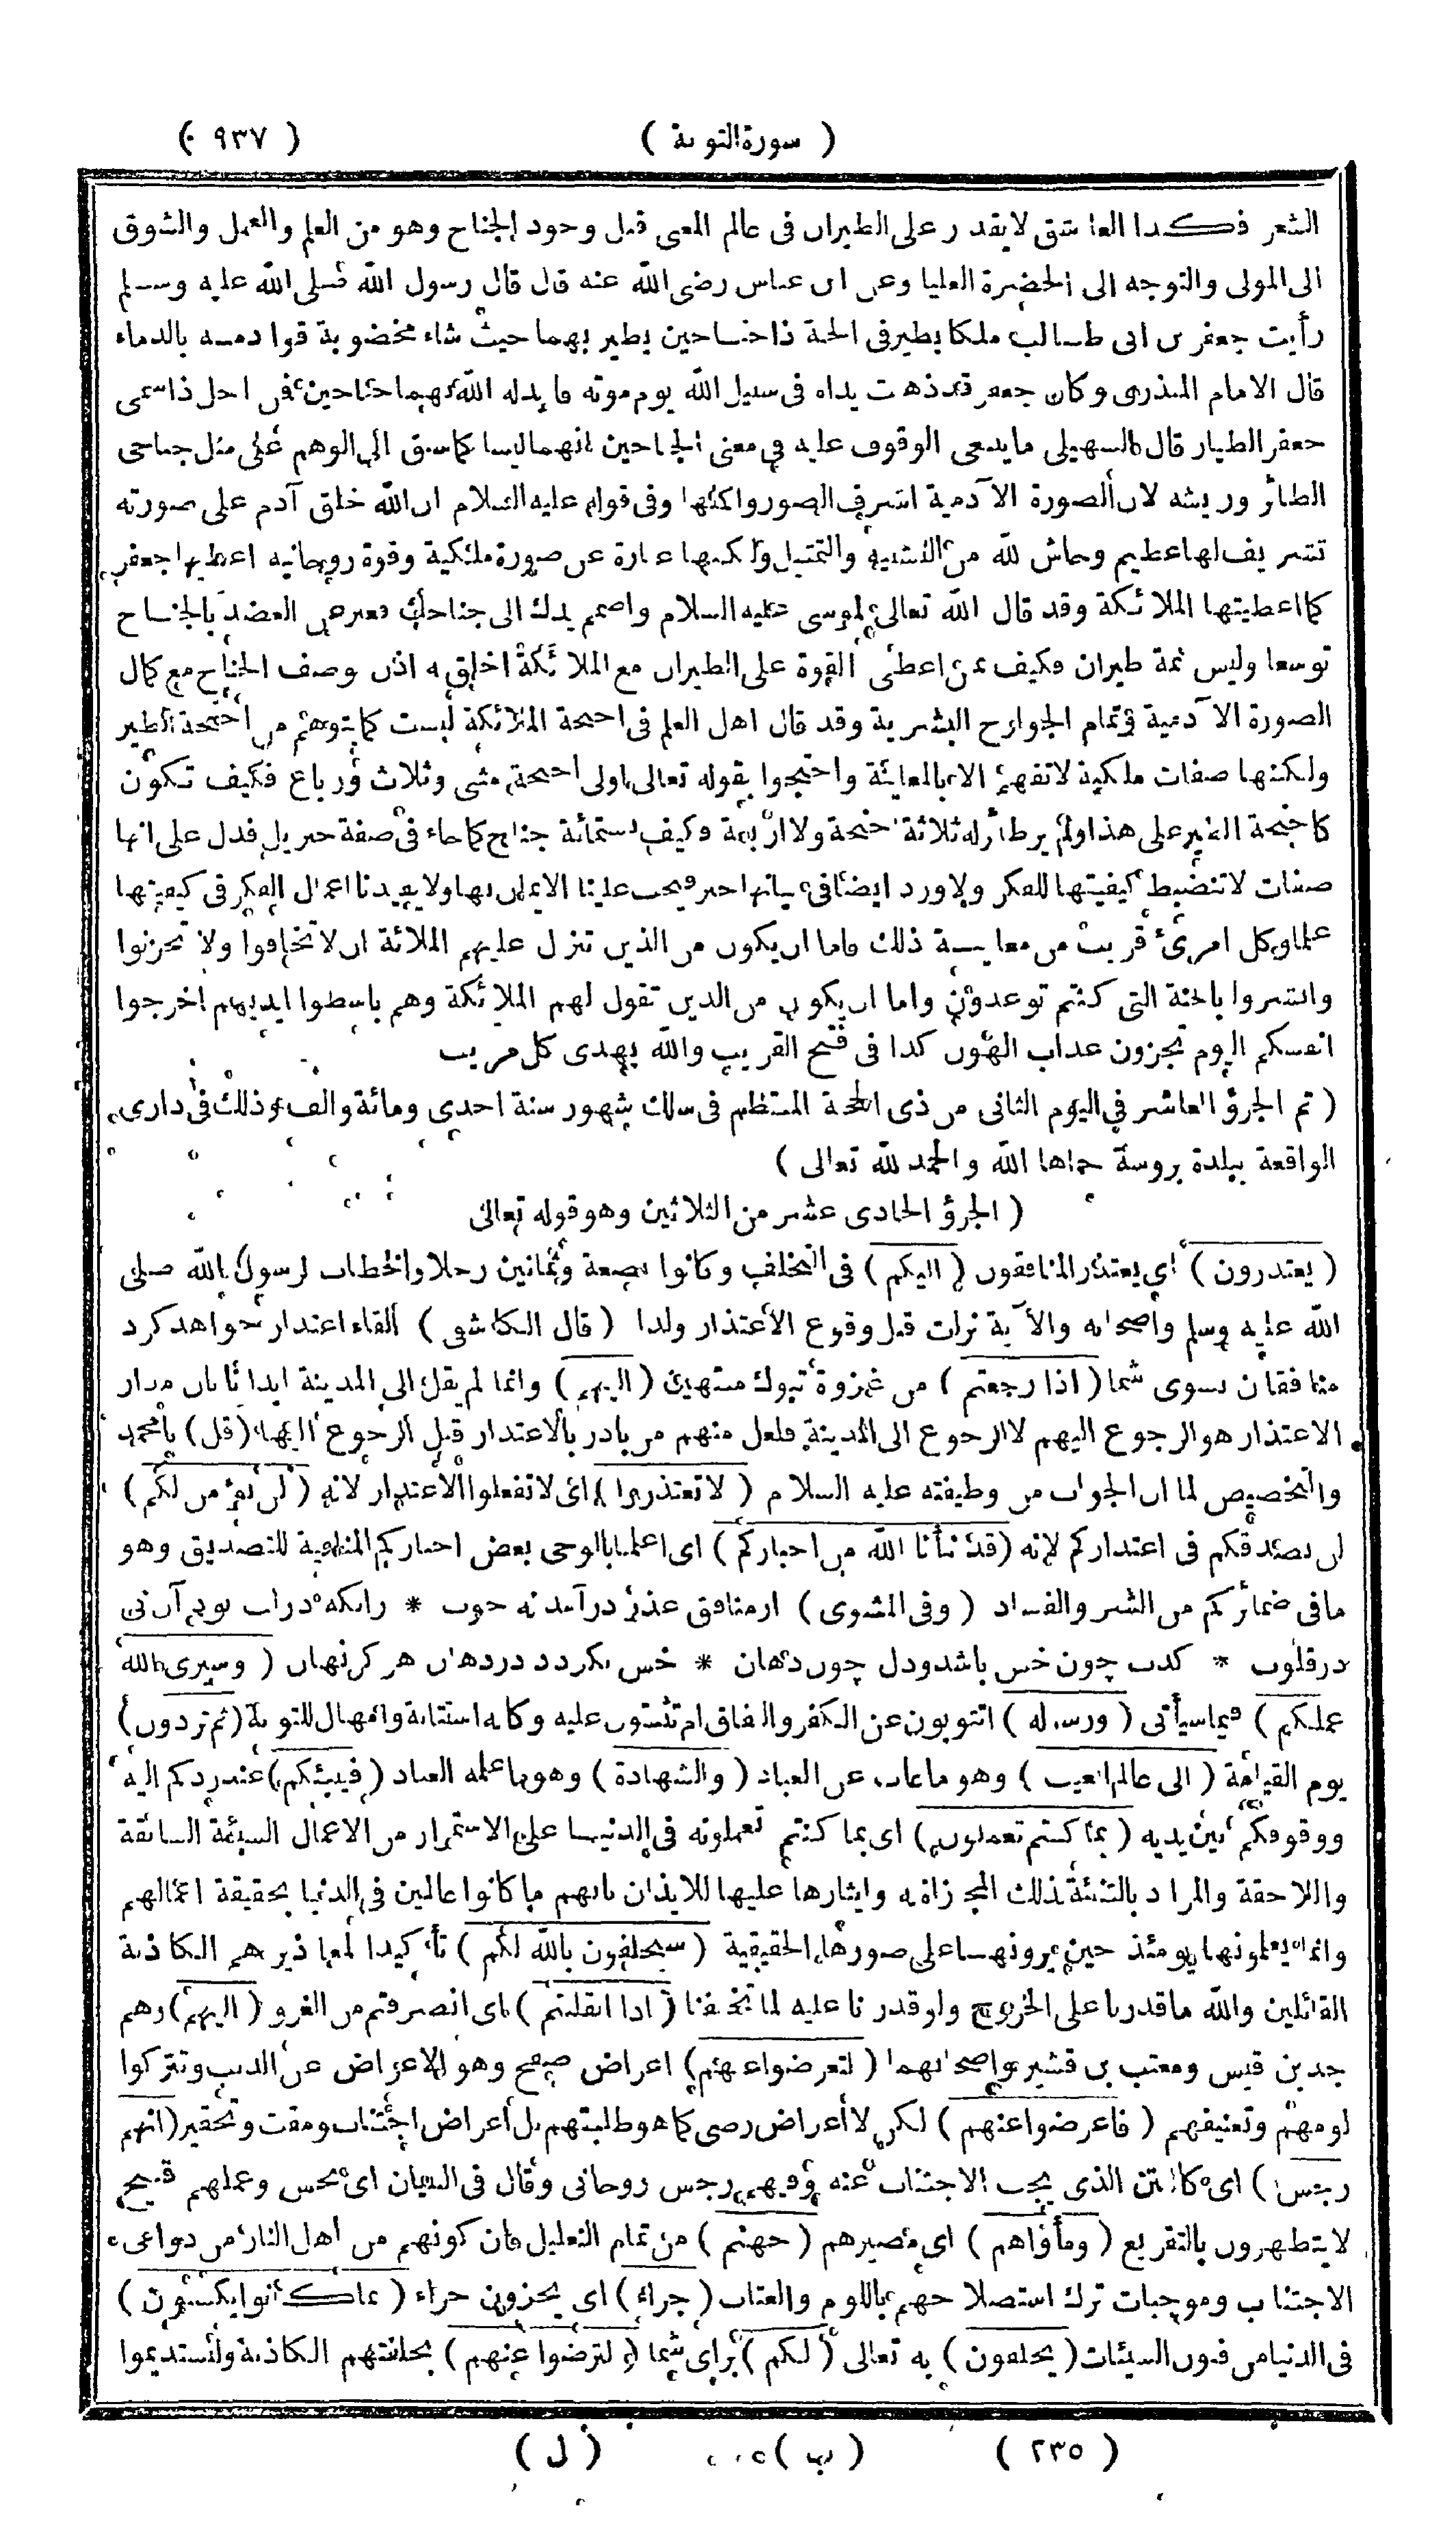 ( سورة التوبة ) ( ٩٣٧ )
الشعر فكذا العاشق لا يقدر على الطيران فى عالم المعنى قبل وجود الجناح وهو من العلم والعمل والشوق
الى المولى والتوجه الى الحضرة العليا وعن ابن عباس رضى الله عنه قال قال رسول الله صلى الله عليه وسلم
رأيت جعفر بن ابى طالب ملكا يطير فى الجنة ذا جناحين يطير بهما حيث شاء مخضوبة قوادمه بالدماء
قال الامام المنذرى وكان جعفر قد ذهبت يداه فى سبيل الله يوم موته فابدله الله بهما جناحين فمن اجل ذا سمى
جعفر الطيار قال السهيلى ما ينبغى الوقوف عليه فى معنى الجناحين انهما ليسا كما يسبق الى الوهم على مثل جناحى
الطائر وريشه لان الصورة الآدمية اشرف الصور واكملها وفى قوله عليه السلام ان الله خلق آدم على صورته
تشريف لها عظيم وحاش لله من التشبيه والتمثيل ولكنها عبارة عن صورة ملكية وقوة روحانيه اعطيها جعفر
كما اعطيتها الملائكة وقد قال الله تعالى لموسى عليه السلام واضمم يدك الى جناحك فعبر عن العضد بالجناح
توسعا وليس ثمة طيران فكيف بمن اعطى القوة على الطيران مع الملائكة اخلق به اذن وصف الجناح مع كمال
الصورة الآدمية وتمام الجوارح البشرية وقد قال اهل العلم فى اجنحة الملائكة ليست كما يتوهم من اجنحة الطير
ولكنها صفات ملكية لا تفهم الا بالمعاينة واحتجوا بقوله تعالى اولى اجنحة مثنى وثلاث ورباع فكيف تكون
كاجنحة الطير على هذا ولم ير طائر له ثلاثة اجنحة ولا اربعة فكيف بستمائة جناح كما جاء فى صفة جبريل فدل على انها
صفات لا تنضبط كيفيتها للفكر ولا ورد ايضا فى بيانها خبر فيجب علينا الايمان بها ولا يفيدنا اعمال الفكر فى كيفيتها
علما وكل امرئ قريب من معاينة ذلك فاما ان يكون من الذين تتنزل عليهم الملائة ان لا تخافوا ولا تحزنوا
وابشروا بالجنة التى كنتم توعدون واما ان يكون من الذين تقول لهم الملائكة وهم باسطوا ايديهم اخرجوا
انفسكم اليوم تجزون عذاب الهون كذا فى فتح القريب والله يهدى كل مريب
( تم الجزؤ العاشر فى اليوم الثانى من ذى الحجة المنتظم فى سلك شهور سنة احدى ومائة والف وذلك فى دارى
الواقعة ببلدة بروسة حماها الله والحمد لله تعالى )
( الجزؤ الحادى عشر من الثلاثين وهو قوله تعالى
( يعتذرون ) اى يعتذر المنافقون ( اليكم ) فى التخلف وكانوا بضعة وثمانين رجلا والخطاب لرسول الله صلى
الله عليه وسلم واصحابه والآية نزلت قبل وقوع الاعتذار ولذا ( قال الكاشفى ) القاء اعتذار خواهد كرد
منافقان بسوى شما ( اذا رجعتم ) من غزوة تبوك منتهين ( اليهم ) وانما لم يقل الى المدينة ايذانا بان مدار
الاعتذار هو الرجوع اليهم لا الرجوع الى المدينة فلعل منهم من بادر بالاعتذار قبل الرجوع اليها ( قل ) يا محمد
والتخصيص لما ان الجواب من وظيفته عليه السلام ( لا تعتذروا ) اى لا تفعلوا الاعتذار لانه ( لن نؤمن لكم )
لن نصدقكم فى اعتذاركم لانه ( قد نبأنا الله من اخباركم ) اى اعلمنا بالوحى بعض اخباركم المنافية للتصديق وهو
ما فى ضمائركم من الشر والفساد ( وفى المثنوى ) از منافق عذر رد آمد نه خوب * زانكه در لب بود آن نى
در قلوب * كذب چون خس باشد ودل چون دهان * خس نكردد در دهان هر كز نهان ( وسيرى الله
عملكم ) فيما سيأتى ( ورسوله ) اتتوبون عن الكفر والنفاق ام تثبتون عليه وكانه استتابة وامهال للتوبة ( ثم تردون )
يوم القيامة ( الى عالم الغيب ) وهو ما غاب عن العباد ( والشهادة ) وهو ما علمه العباد ( فينبئكم ) عند ردكم اليه
ووقوفكم بين يديه ( بما كنتم تعملون ) اى بما كنتم تعملونه فى الدنيا على الاستمرار من الاعمال السيئة السابقة
واللاحقة والمراد بالتنبئة بذلك المجازاة به وايثارها عليها للايذان بانهم ما كانوا عالمين فى الدنيا بحقيقة اعمالهم
وانما يعلمونها يومئذ حين يرونها على صورها الحقيقية ( سيحلفون بالله لكم ) تأكيدا لمعاذيرهم الكاذبة
القائلين والله ما قدرنا على الخروج ولو قدرنا عليه لما تخلفنا ( اذا انقلبتم ) اى انصرفتم من الغزو ( اليهم ) وهم
جد بن قيس ومعتب بن قشير واصحابهما ( لتعرضوا عنهم ) اعراض صفح وهو الاعراض عن الذنب وتتركوا
لومهم وتعنيفهم ( فاعرضوا عنهم ) لكن لا اعراض رضى كما هو طلبتهم بل اعراض اجتناب ومقت وتحقير ( انهم
رجس ) اى كالنتن الذى يجب الاجتناب عنه وفيهم رجس روحانى وقال فى التبيان اى نجس وعملهم قبيح
لا يتطهرون بالتقريع ( ومأواهم ) اى مصيرهم ( جهنم ) من تمام التعليل فان كونهم من اهل النار من دواعى
الاجتناب وموجبات ترك استصلاحهم باللوم والعتاب ( جزاء ) اى يجزون جزاء ( بما كانوا يكسبون )
فى الدنيا من فنون السيئات ( يحلفون ) به تعالى ( لكم ) براى شما ( لترضوا عنهم ) بحلفتهم الكاذبة ولتستديموا
( ٢٣٥ ) ( ب ) ( ل )